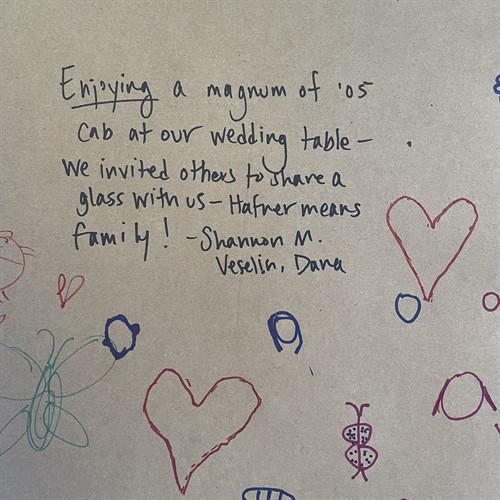 Enjoying a magnum of '05
cab at our wedding table—
we invited others to share a
glass with us—Hafner means
family! -Shannon M.
Veselin, Dana